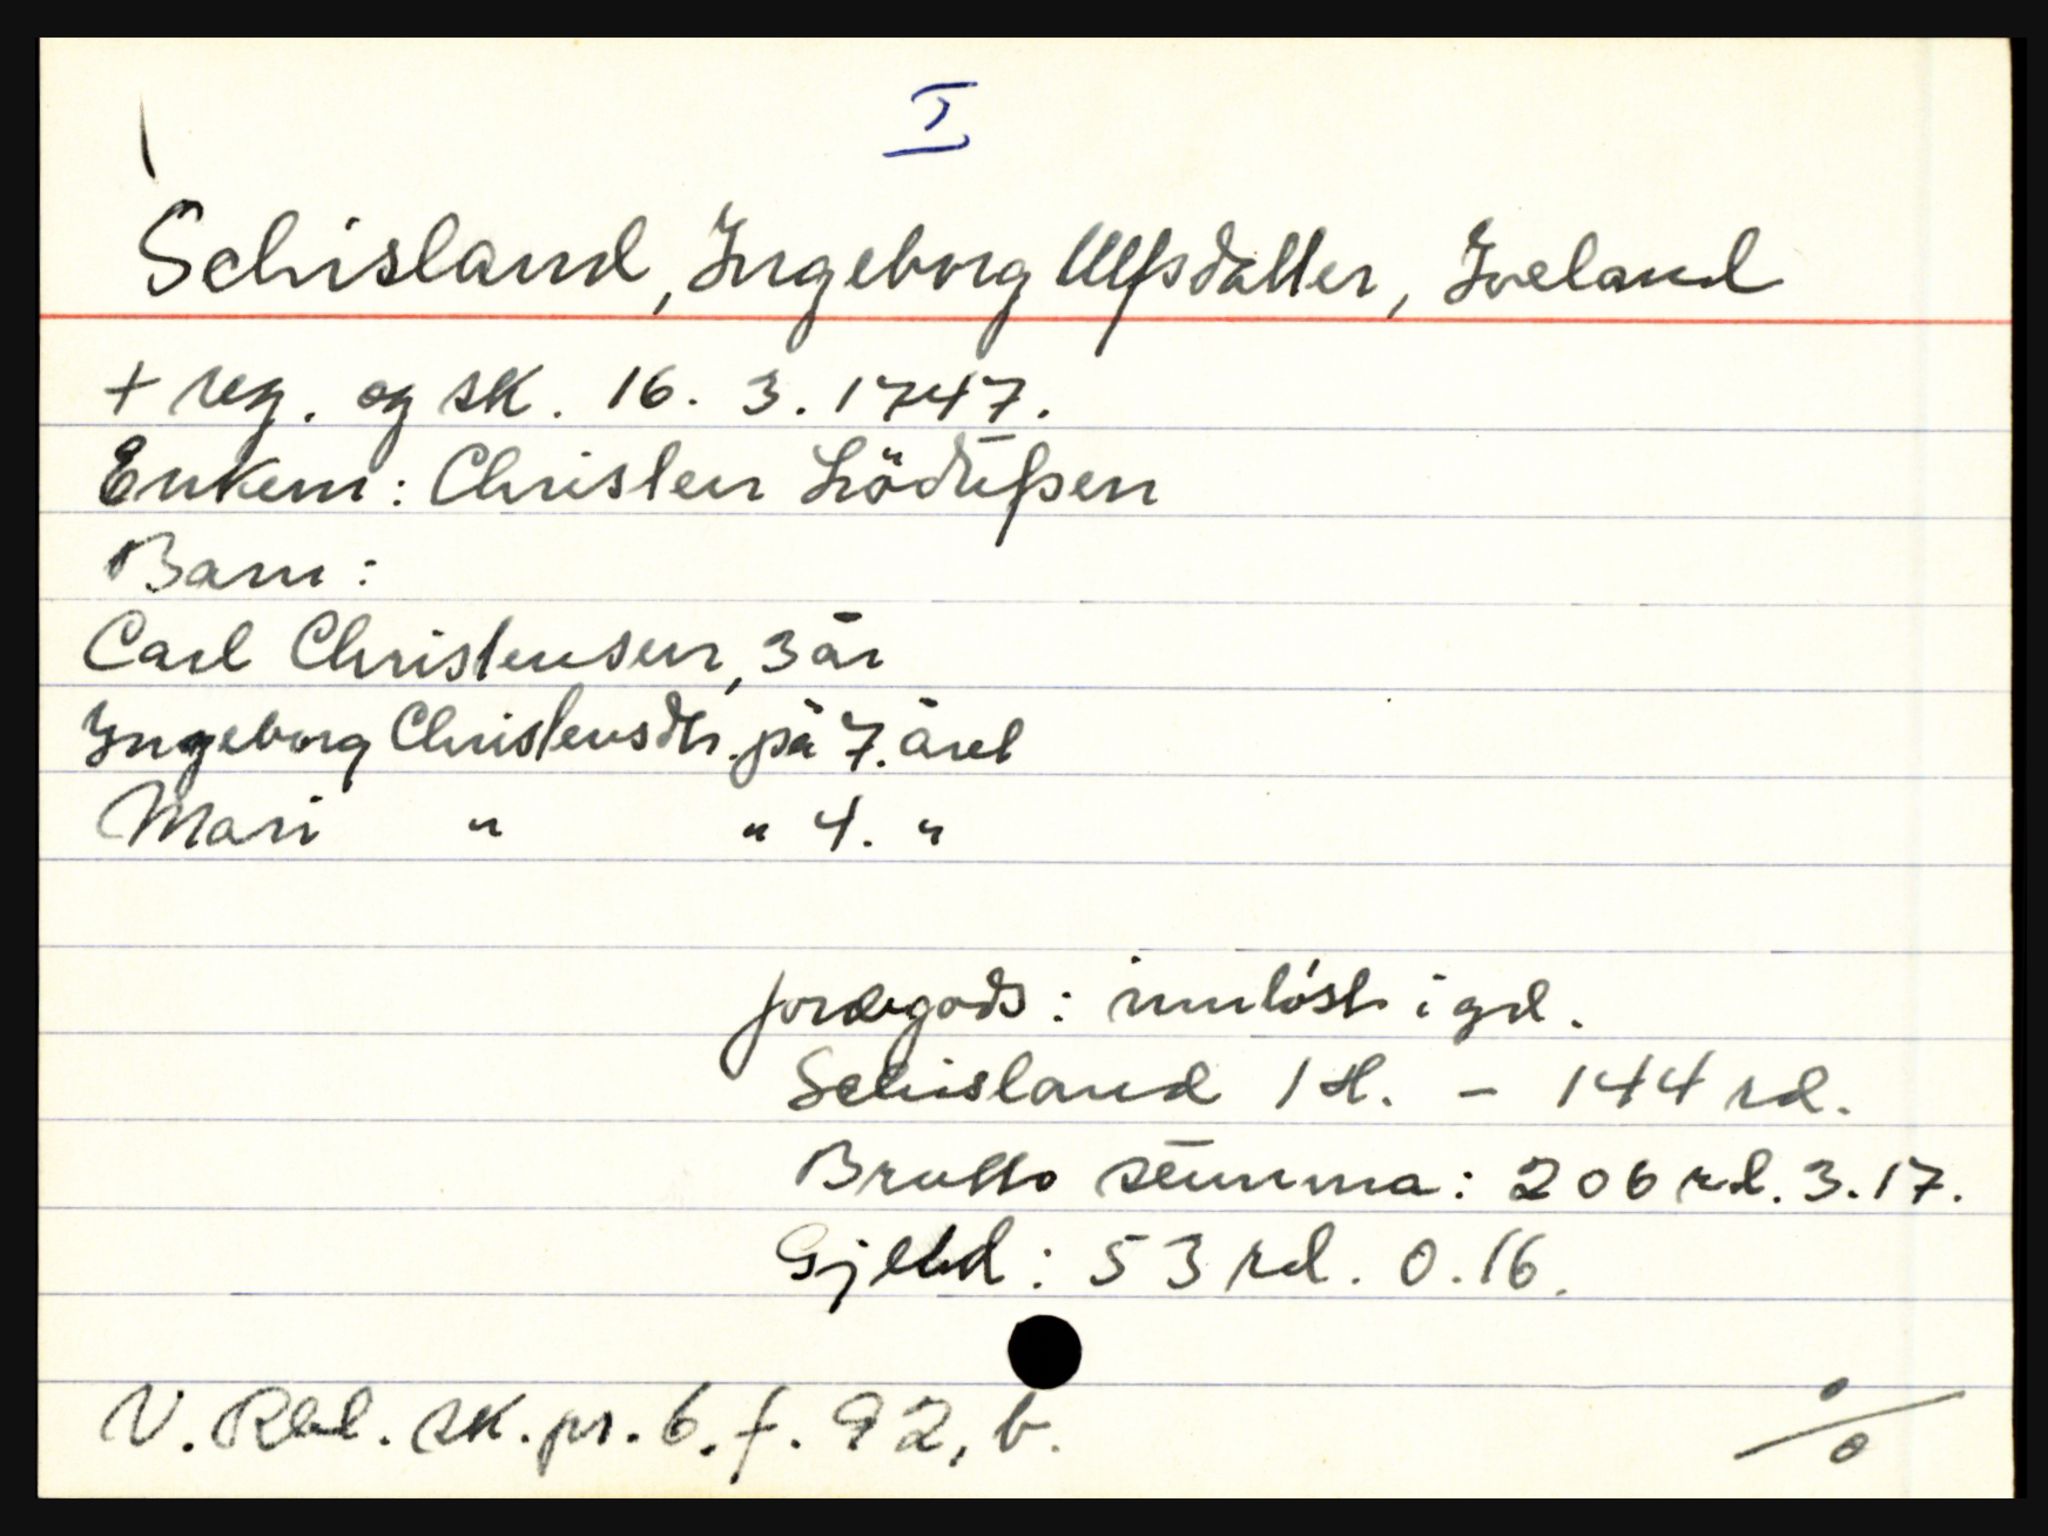 I
Schisland, Ingeborg Ulfsdatter, Iveland
+ reg. og sk. 16. 3. 1747.
Enkem: Christen Lödūfsen
Barn:
Carl Christensen, 3 år
Ingeborg Christensdtr. på 7. året
Mari " " 4. "
jordegods: innløst i grd.
Schisland 1 H. - 144 rd.
Brutto sūmma: 206 rd. 3. 17.
Gjeld: 53 rd. 0. 16.
V. Rbl. sk. pr. 6. f. 92, b.
%